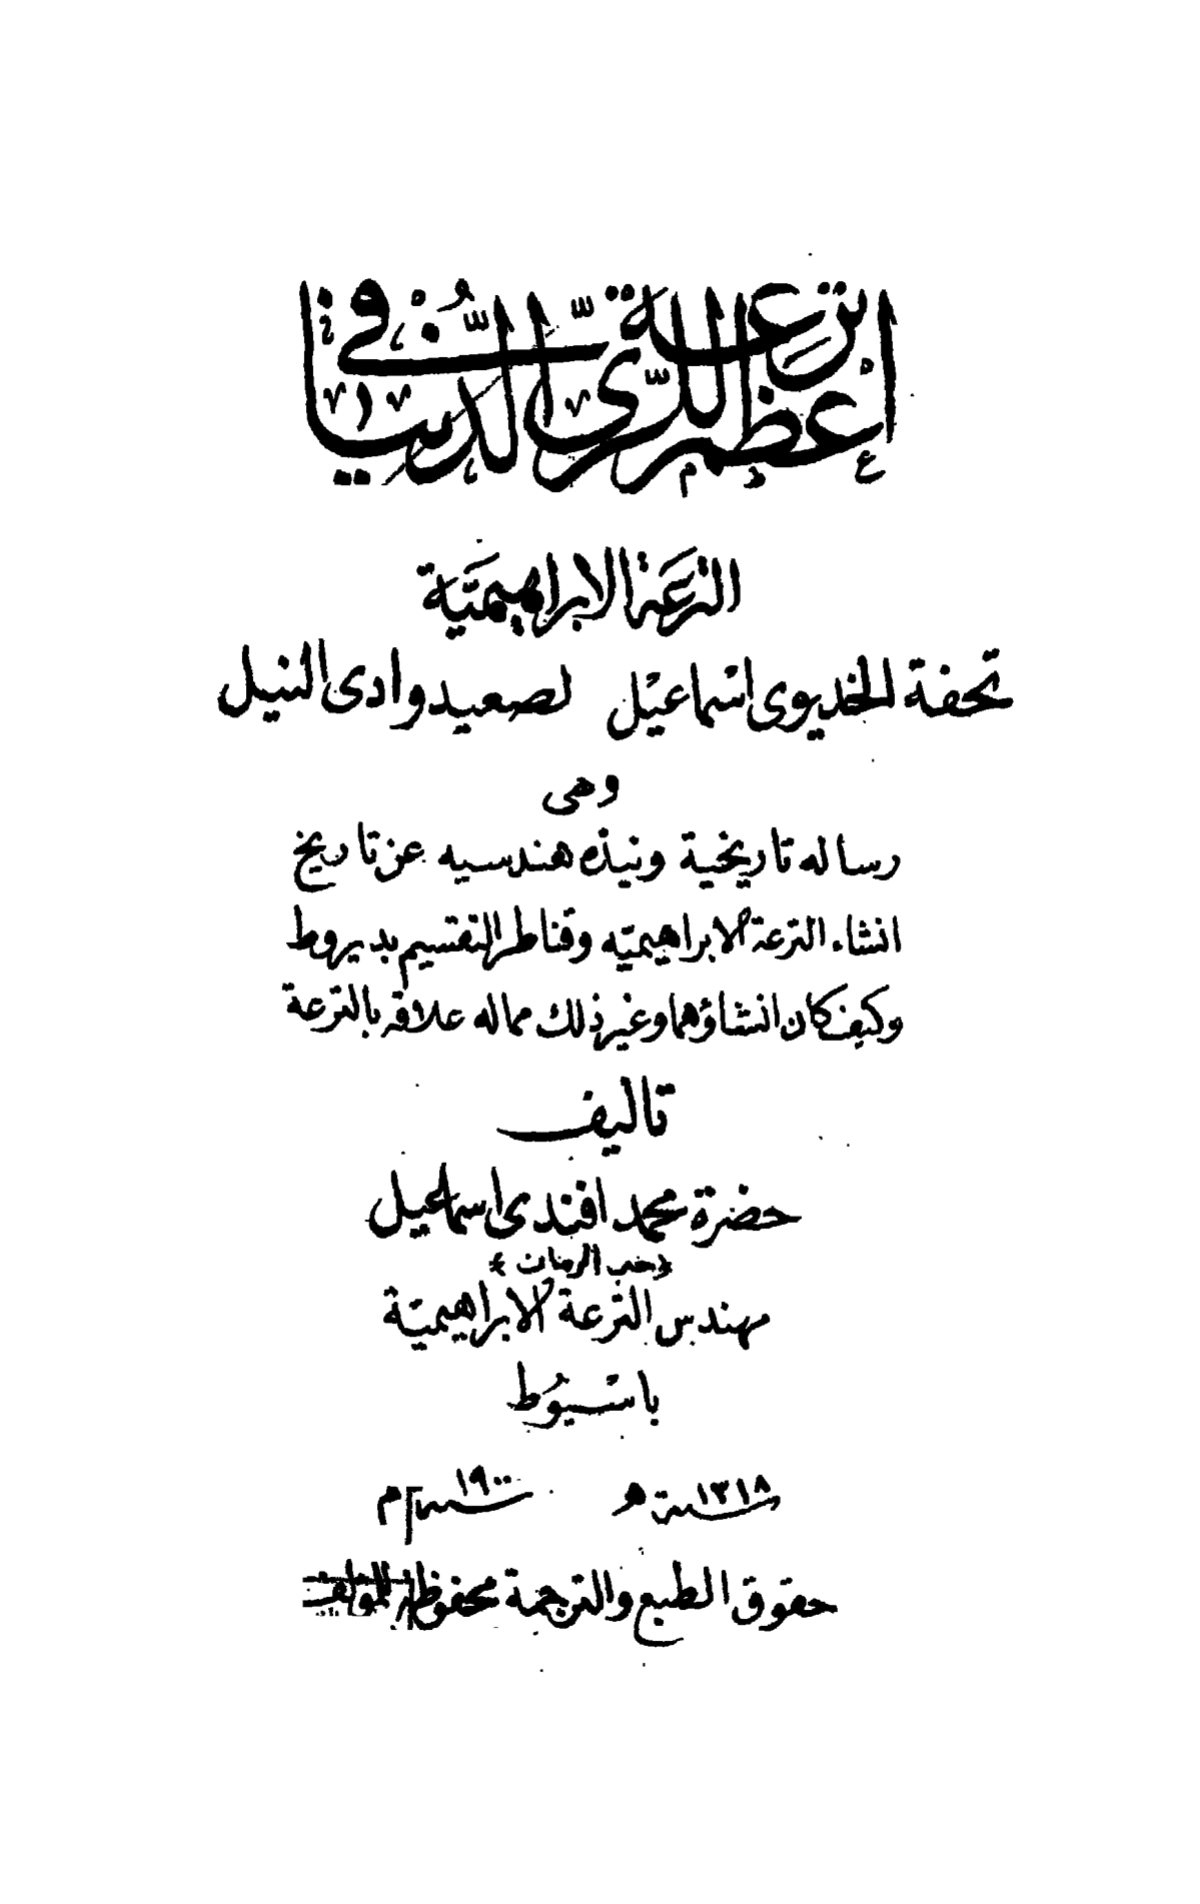 أعظم ترعة للرّى فى الدنيا
الترعة الابراهيميّة
تحفة الخديوى اسماعيل لصعيد وادى النيل
وهى
رساله تاريخية ونبذه هندسيه عن تاريخ
انشاء الترعة الابراهيميّه وقناطر التقسيم بديروط
وكيف كان انشاؤهما وغير ذلك مماله علاقه بالترعة
تاليف
حضرة محمد افندى اسماعيل
مهندس الترعة الابراهيميّة
باسيوط
سنة ١٣١٨ هـ سنة ١٩٠٠ م
حقوق الطبع والترجمة محفوظة للمؤلف